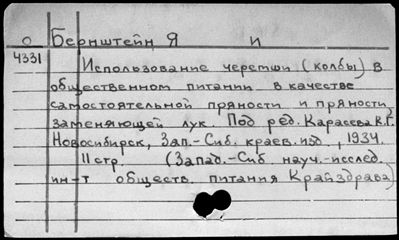 О Бернштейн Я И
4331 Использование черемши (колбы) в
общественном питании в качестве
самостоятельной пряности и пряности,
заменяющей лук. Под ред. Карасева К.Г.
Новосибирск, Зап.-Сиб. краев. изд., 1934.
11 стр. (Запад.-Сиб науч.-исслед.
ин-т обществ. питания Крайздрава)